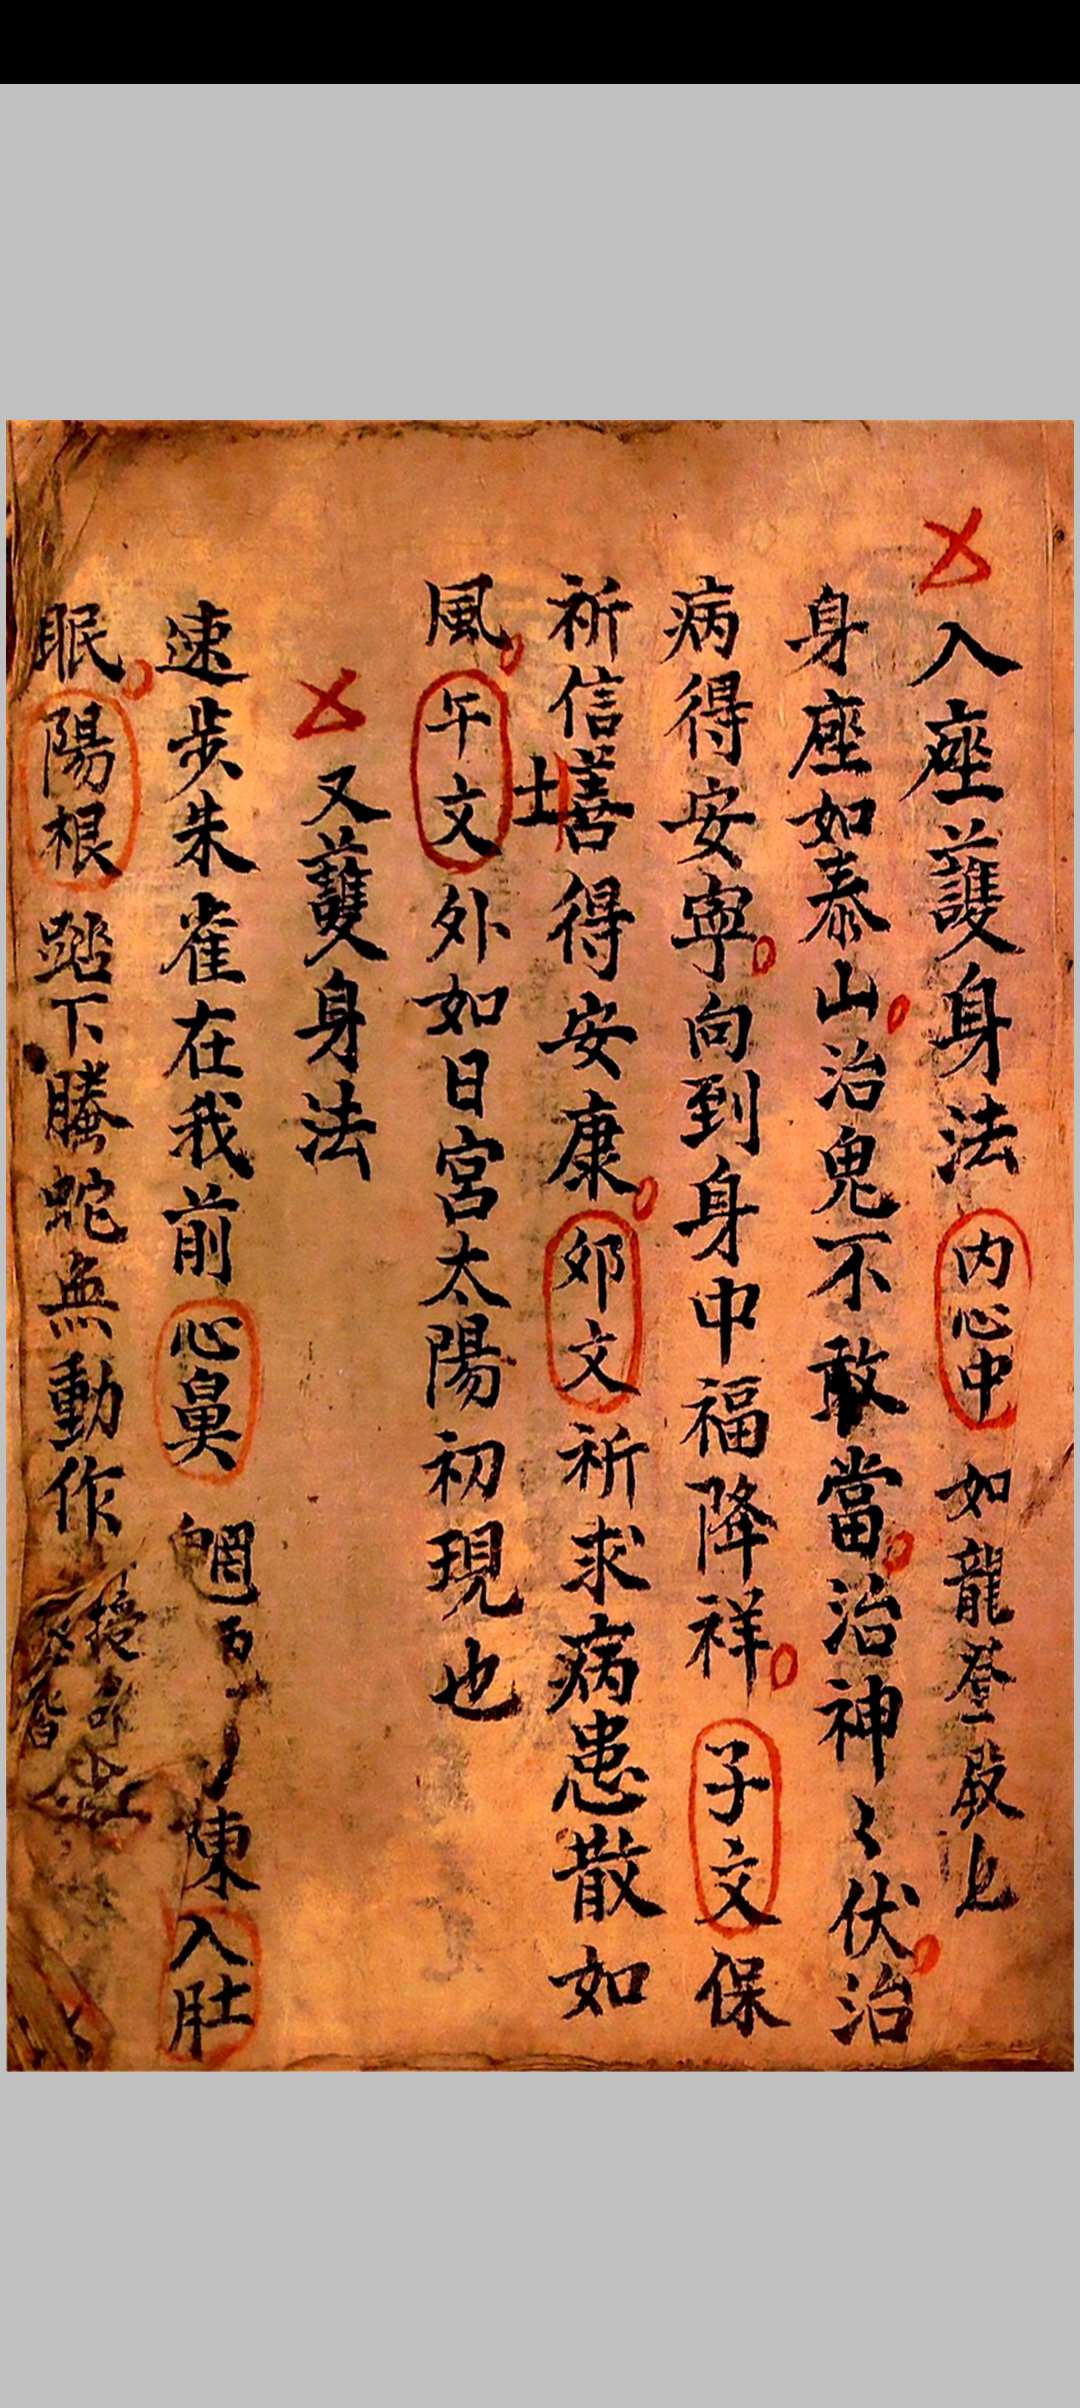 入座護身法内心中如龍登殿上
身座如泰山治鬼不敢當治神〻伏治
病得安寧向到身中福降祥子文保
祈信士善得安康卯文祈求病患散如
風午文外如日宮太陽初現也
又護身法
速步朱雀在我前心鼻陳入肚
眠陽根踏下騰蛇無動作